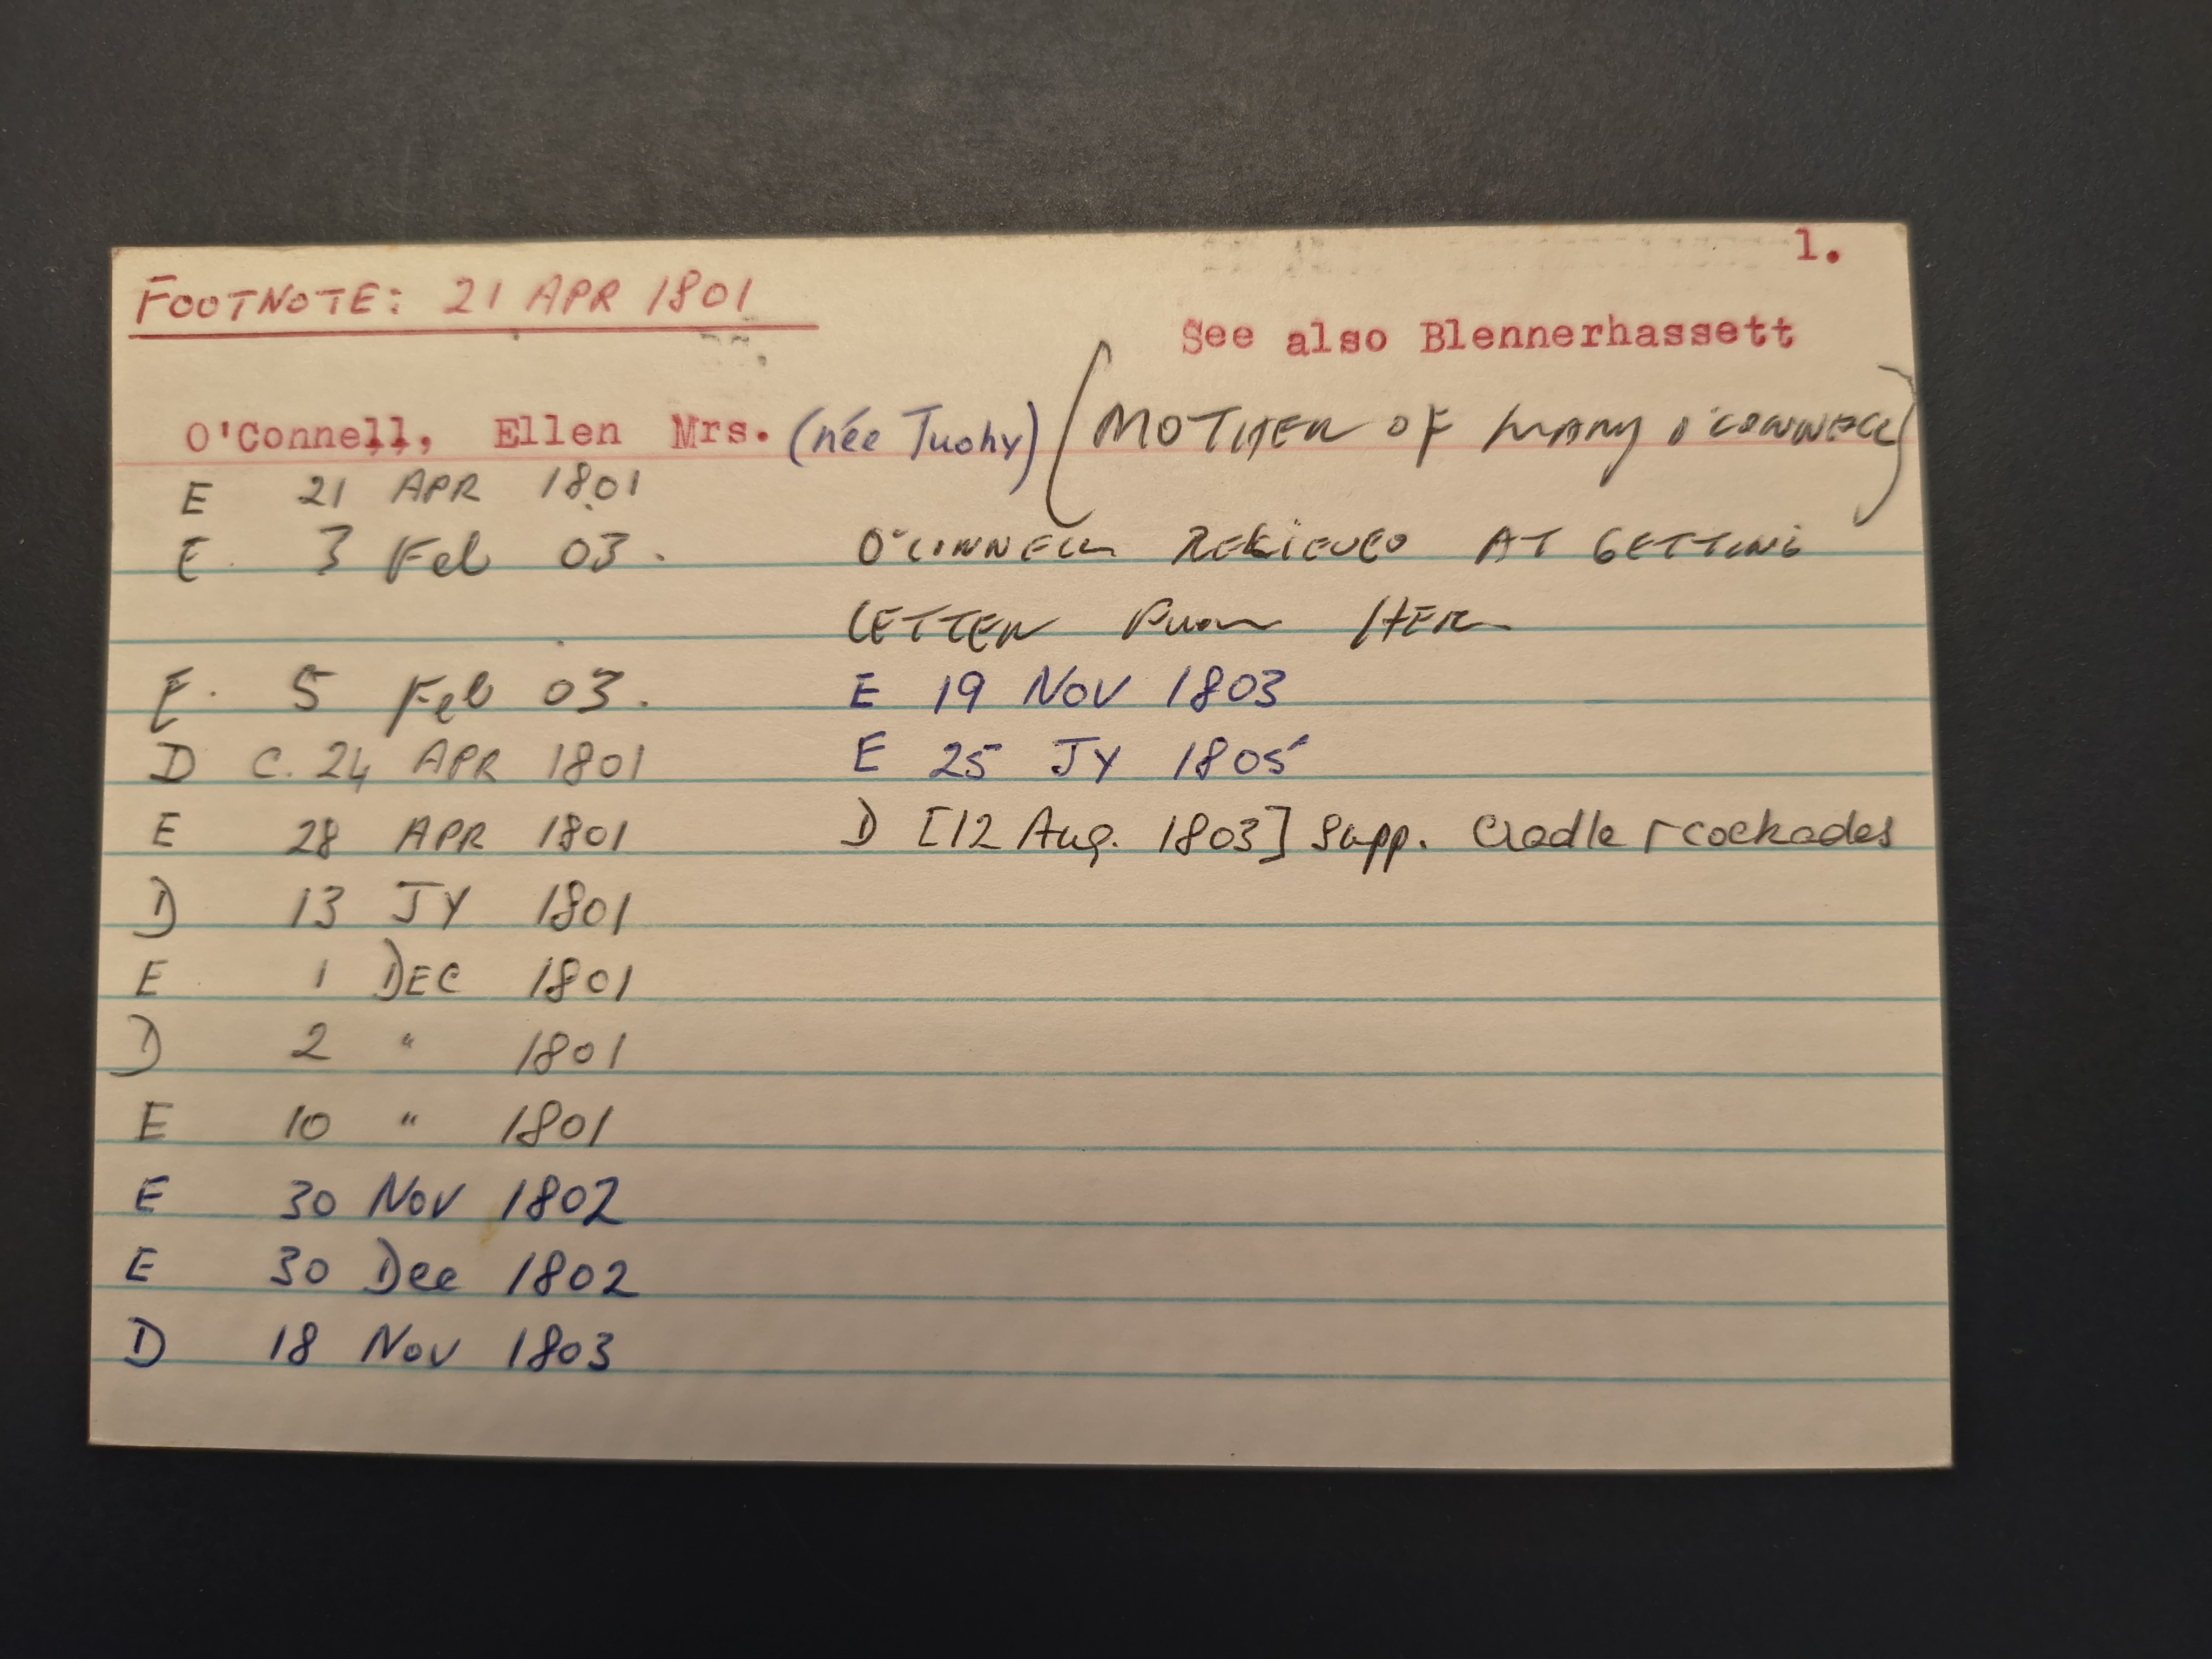 1.
FOOTNOTE: 21 APR 1801
See also Blennerhassett
O'Connell, Ellen Mrs. (née Tuohy) (MOTHER OF MARY O'CONNELL)
E 21 APR 1801
E. 3 Feb 03. O'CONNELL RELIEVED AT GETTING
LETTER FROM HER
E. 5 Feb 03. E 19 NOV 1803
D C. 24 APR 1801 E 25 JY 1805
E 28 APR 1801 D [12 Aug. 1803] Supp. Cradle & cockades
D 13 JY 1801
E 1 DEC 1801
D 2 " 1801
E 10 " 1801
E 30 Nov 1802
E 30 Dec 1802
D 18 Nov 1803